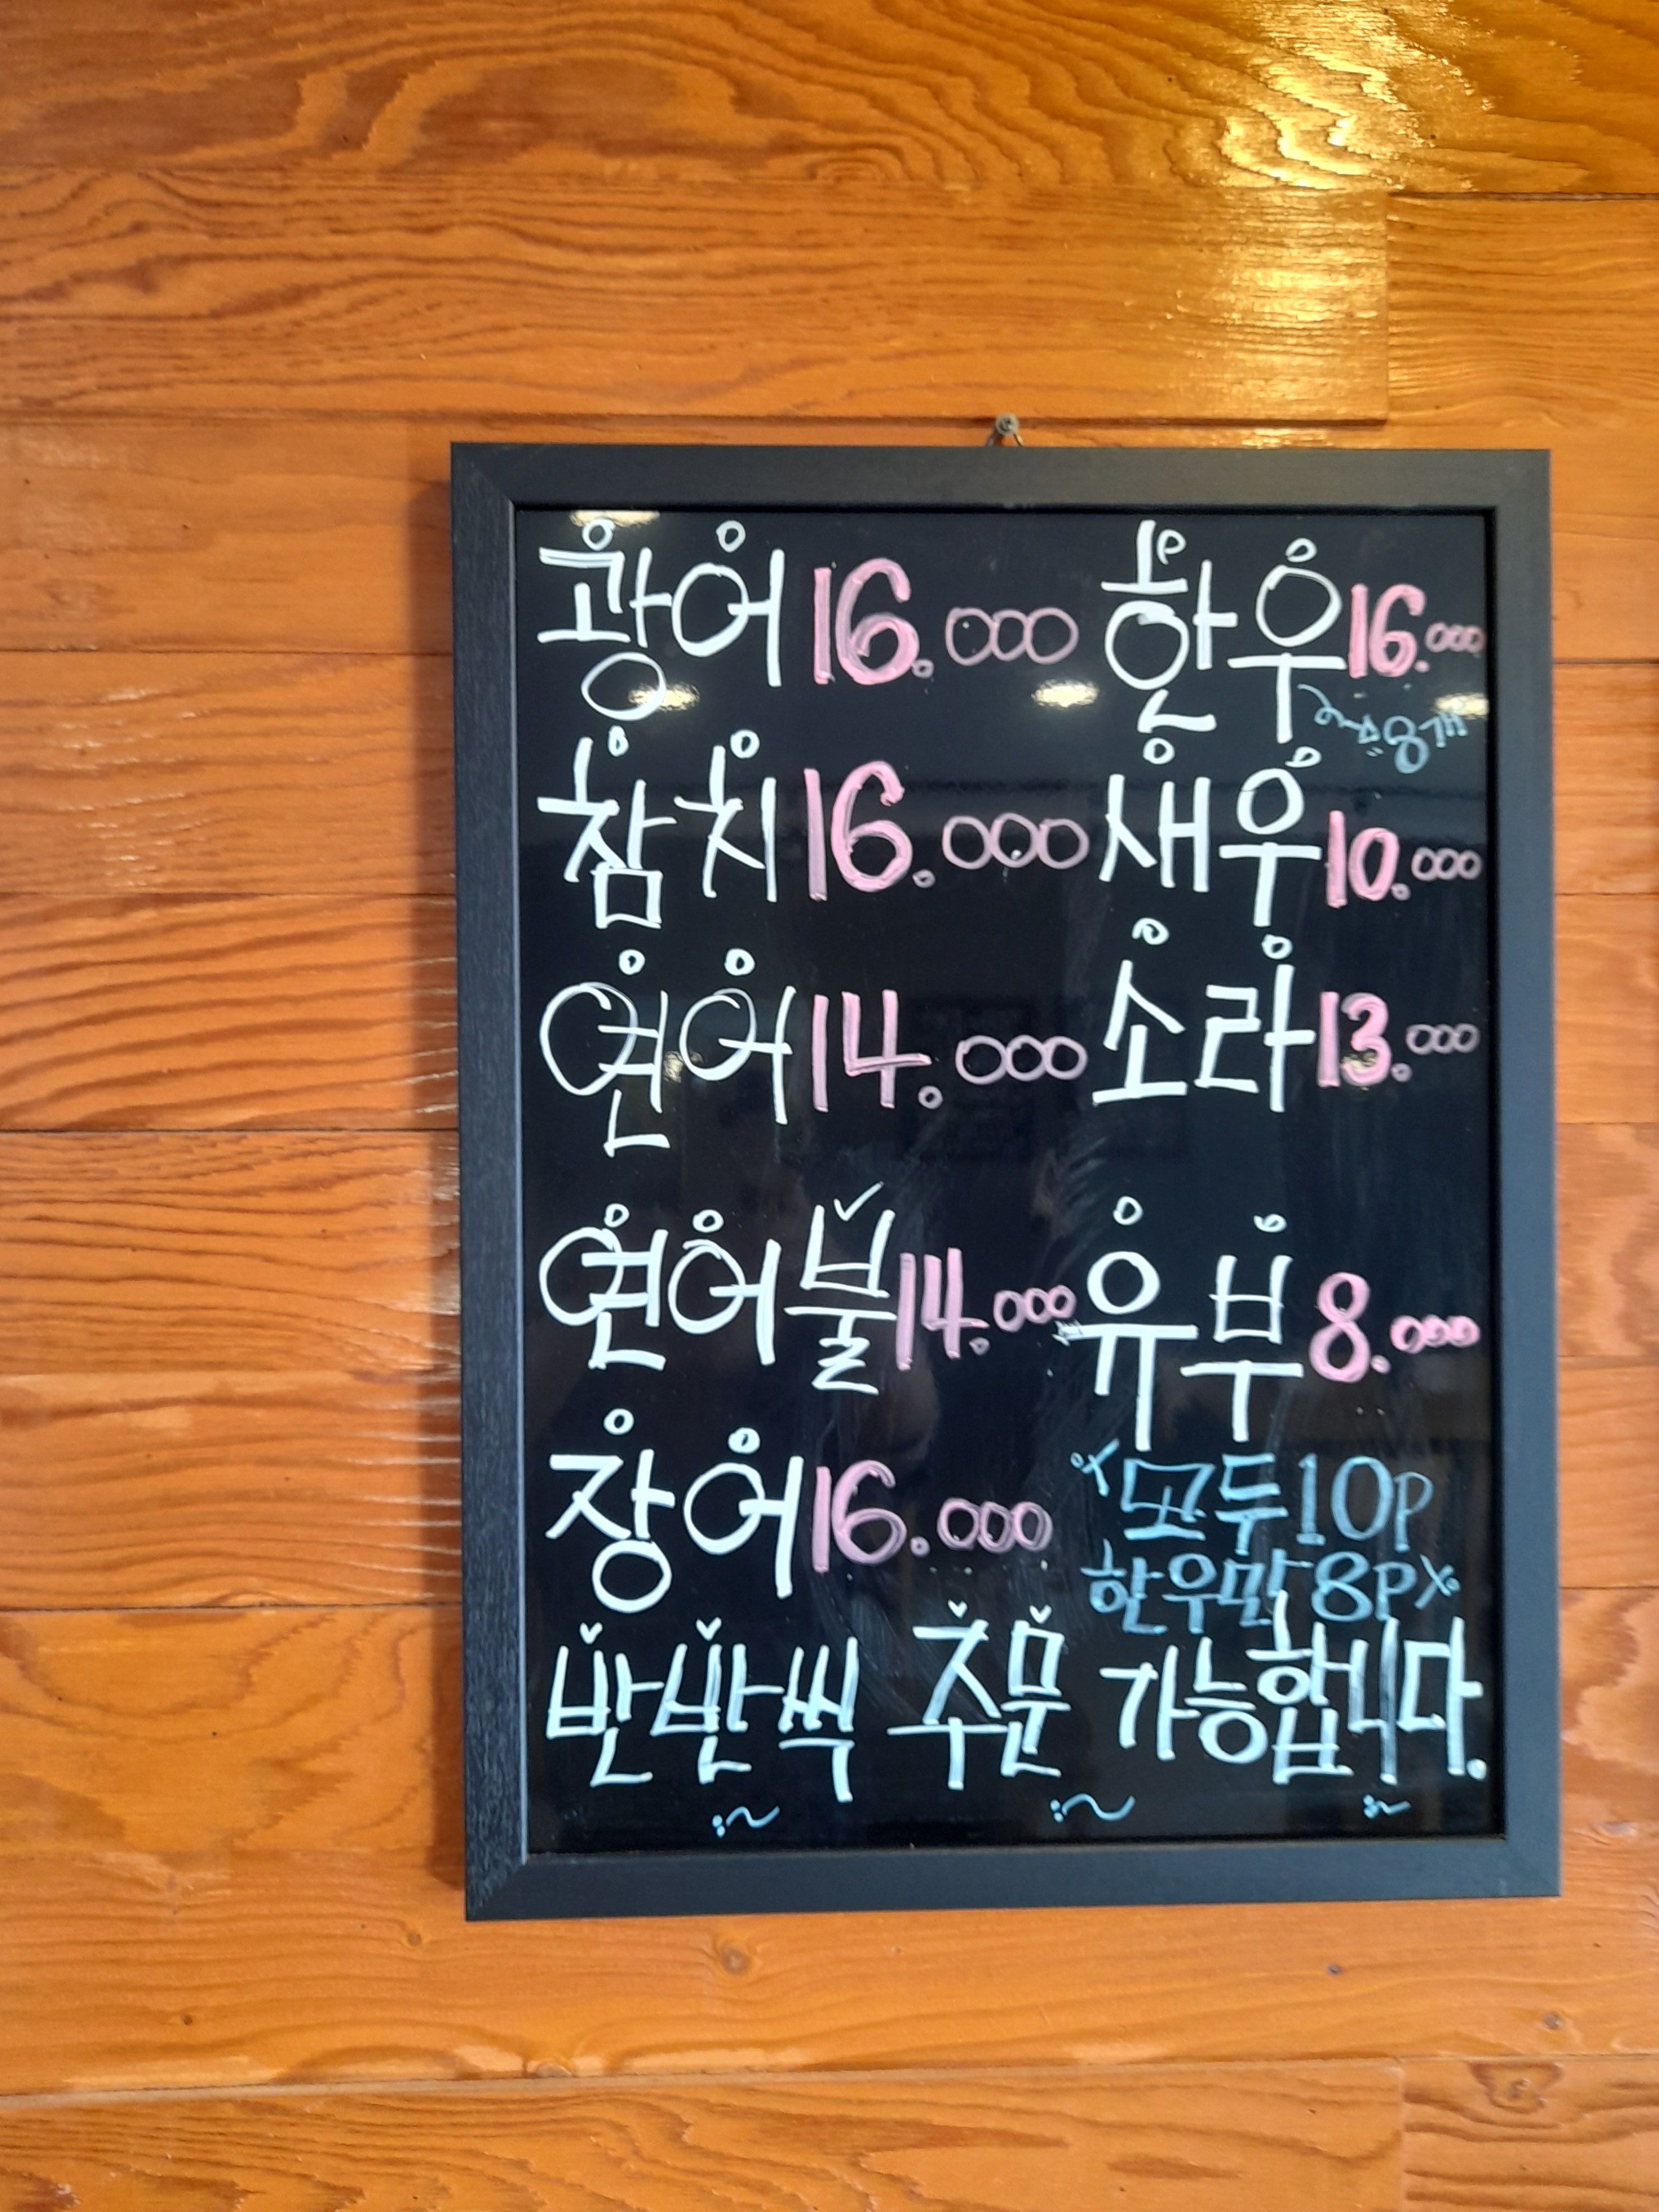 광어 16.000 한우 16.000
8개
참치 16.000 새우 10.000
연어 14.000 소라 13.000
연어불 14.000 유부 8.000
장어 16.000 모두 10p
한우만 8p
반반씩 주문 가능합니다.